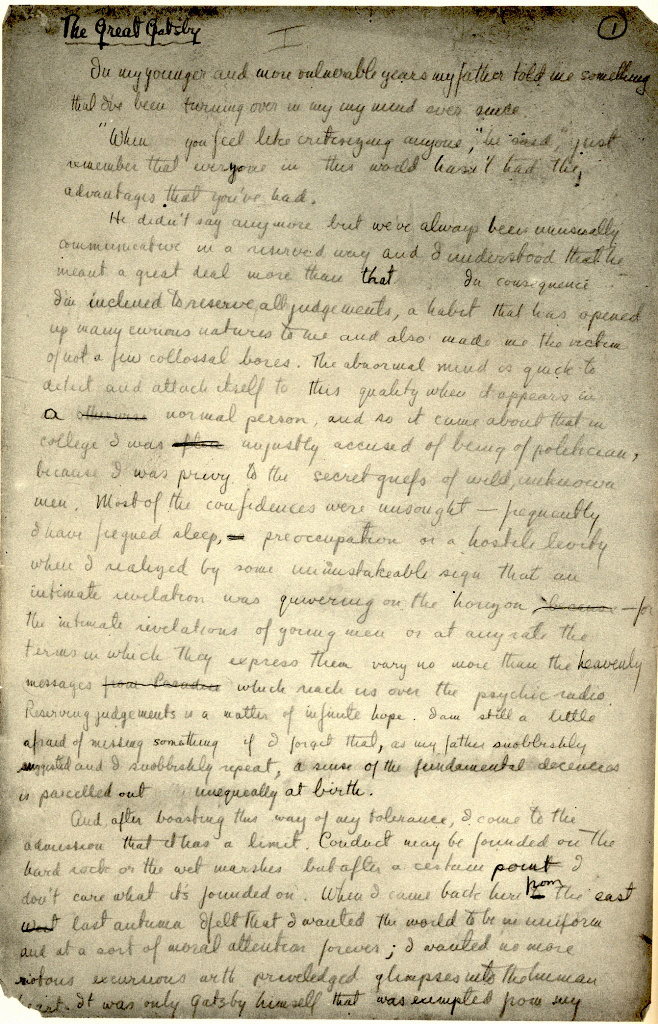 The Great Gatsby
I
1
In my younger and more vulnerable years my father told me something
that I've been turning over in my my mind ever since.
"When you feel like critisizing anyone," he said, "just
remember that everyone in this world hasn't had the
advantages that you've had.
He didn't say anymore but we've always been unusually
communicative in a reserved way and I understood that he
meant a great deal more than that In consequence
I'm inclined to reserve all judgements, a habit that has opened
up many curious natures to me and also made me the victim
of not a few collossal bores. The abnormal mind is quick to
detect and attach itself to this quality when it appears in
a otherwise normal person, and so it came about that in
college I was unjustly accused of being of politician,
because I was privy to the secret griefs of wild, unknown
men. Most of the confidences were unsought — frequently
I have feigned sleep, preoccupation or a hostile levity
when I realized by some unmistakeable sign that an
intimate revelation was quivering on the horizon because — for
the intimate revelations of young men or at any rate the
terms in which they express them vary no more than the heavenly
messages from Pasadena which reach us over the psychic radio.
Reserving judgements is a matter of infinite hope. I am still a little
afraid of missing something if I forget that, as my father snobbishly
suggested and I snobbishly repeat, a sense of the fundamental decencies
is parcelled out unequally at birth.
And, after boasting this way of my tolerance, I come to the
admission that it has a limit. Conduct may be founded on the
hard rock or the wet marshes but after a certain point I
don't care what it's founded on. When I came back here from the east
west last autumn I felt that I wanted the world to be in uniform
and at a sort of moral attention forever; I wanted no more
riotous excursions with priviledged glimpses into the human
heart. It was only Gatsby himself that was exempted from my